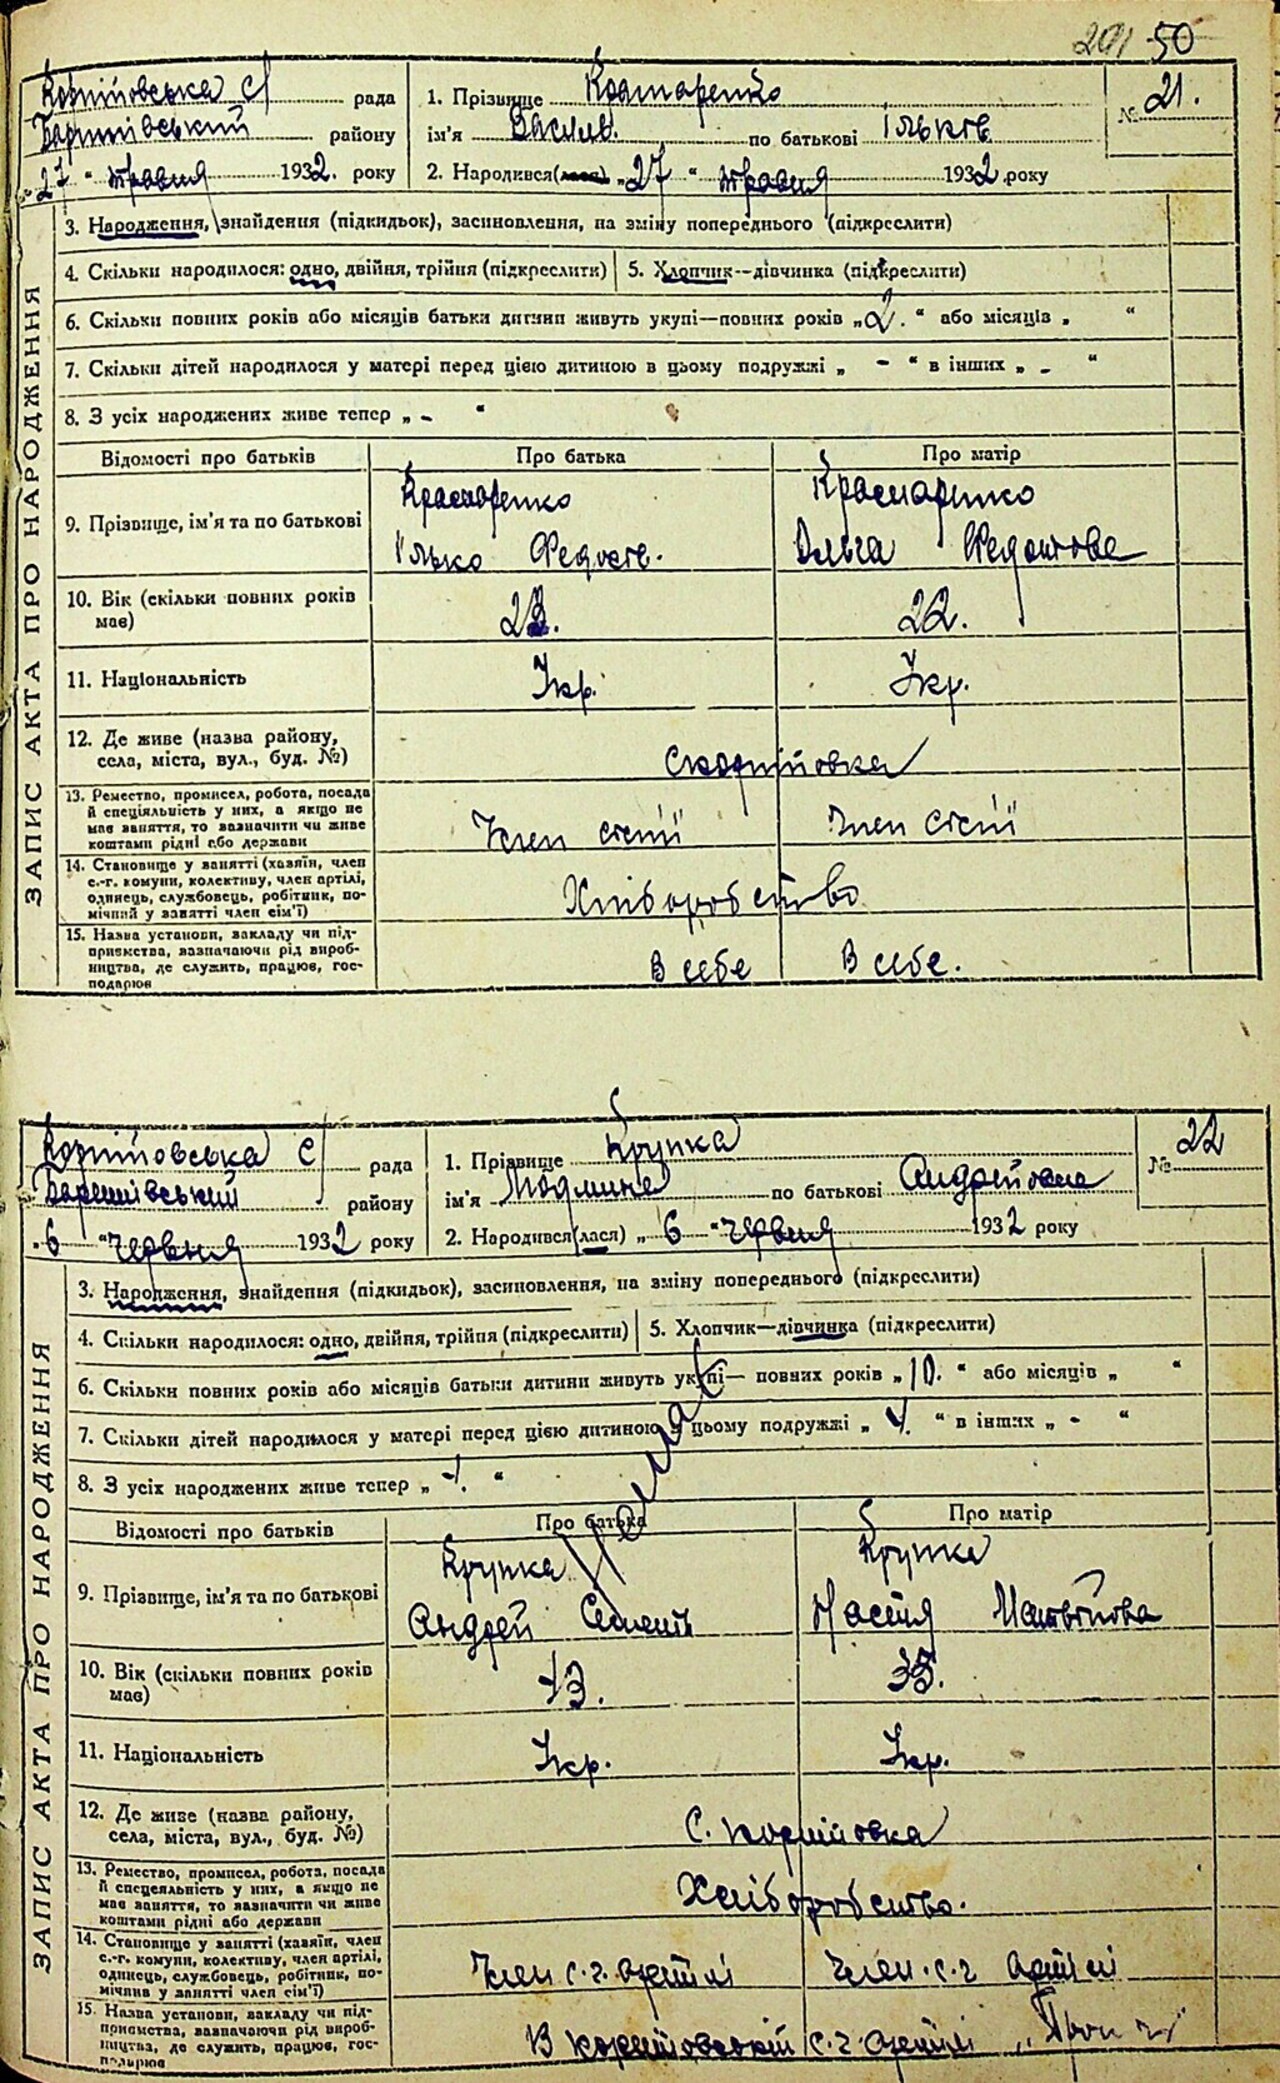 291 50
рада
району
27 " травня 1932. року
1. Прізвище
ім'я Василь. по батькові Ільков
2. Народився(лася) „27 " травня 1932. року
№ 21.
ЗАПИС АКТА ПРО НАРОДЖЕННЯ
3. Народження, знайдення (підкидьок), засиновлення, на зміну попереднього (підкреслити)
4. Скільки народилося: одно, двійня, трійня (підкреслити)
5. Хлопчик—дівчинка (підкреслити)
6. Скільки повних років або місяців батьки дитини живуть укупі—повних років „2. " або місяців „ "
7. Скільки дітей народилося у матері перед цією дитиною в цьому подружжі „ - " в інших „ - "
8. З усіх народжених живе тепер „ - "
Відомості про батьків
Про батька
Про матір
9. Прізвище, ім'я та по батькові
Ілько Федосів.
Ольга
10. Вік (скільки повних років
має)
22.
11. Національність
Укр.
Укр.
12. Де живе (назва району,
села, міста, вул., буд. №)
13. Ремество, промисел, робота, посада
й спеціяльність у них, а якщо не
має заняття, то зазначити чи живе
коштами рідні або держави
Член сісті
Член сісті
14. Становище у занятті (хазяїн, член
с.-г. комуни, колективу, член артілі,
одинець, службовець, робітник, по-
мічний у занятті член сім'ї)
Хліборобство
15. Назва установи, закладу чи під-
приємства, зазначаючи рід вироб-
ництва, де служить, працює, гос-
подарює
В себе
В себе.
рада
району
6 " червня 1932 року
1. Прізвище Крупка
ім'я по батькові Андрейовна
2. Народився(лася) „ 6 " червня 1932 року
№ 22
ЗАПИС АКТА ПРО НАРОДЖЕННЯ
3. Народження, знайдення (підкидьок), засиновлення, на зміну попереднього (підкреслити)
4. Скільки народилося: одно, двійня, трійня (підкреслити)
5. Хлопчик—дівчинка (підкреслити)
6. Скільки повних років або місяців батьки дитини живуть укупі— повних років „10. " або місяців „ "
7. Скільки дітей народилося у матері перед цією дитиною в цьому подружжі „ 4. " в інших „ - "
8. З усіх народжених живе тепер „ 4. "
Відомості про батьків
Про батька
Про матір
9. Прізвище, ім'я та по батькові
Крупка
Крупка
Андрей Семенів
Настя Матвійова
10. Вік (скільки повних років
має)
43.
35.
11. Національність
Укр.
Укр.
12. Де живе (назва району,
села, міста, вул., буд. №)
С.
13. Ремество, промисел, робота, посада
й спецеяльність у них, а якщо не
має заняття, то зазначити чи живе
коштами рідні або держави
Хліборобство.
14. Становище у занятті (хазяїн, член
с.-г. комуни, колективу, член артілі,
одинець, службовець, робітник, по-
мічник у занятті член сім'ї)
Член с.г. артілі
Член с.г артілі
15. Назва установи, закладу чи під-
приємства, зазначаючи рід вироб-
ництва, де служить, працює, гос-
подарює
В с.г. артілі